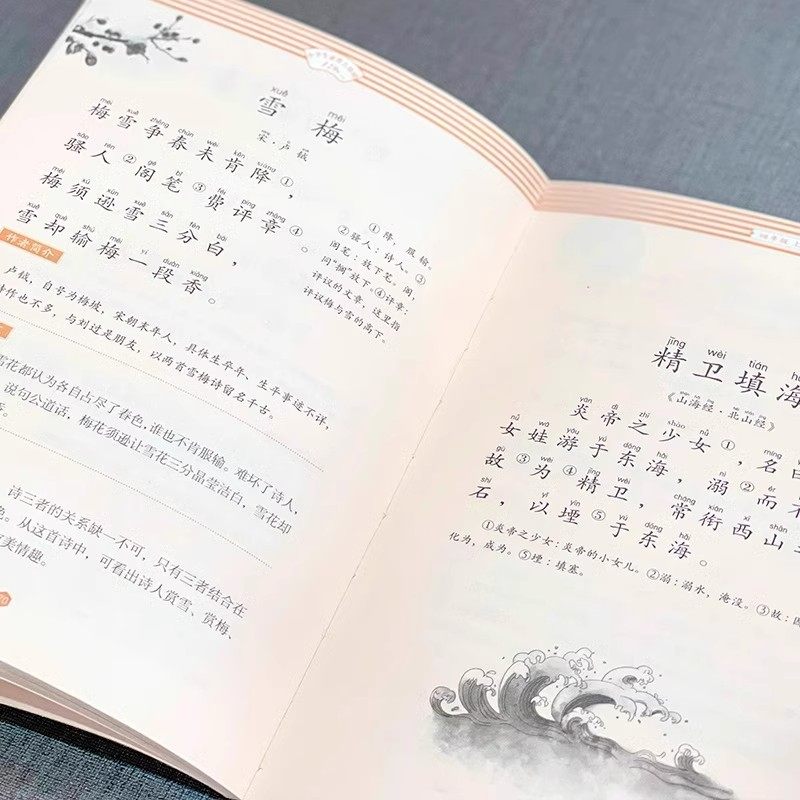 xuě méi
雪 梅
宋·卢钺
méi xuě zhēng chūn wèi kěn xiáng
梅雪争春未肯降①，
sāo rén gē bǐ fèi píng zhāng
骚人②阁笔③费评章④。
méi xū xùn xuě sān fēn bái
梅须逊雪三分白，
xuě què shū méi yí duàn xiāng
雪却输梅一段香。
①降，服输。
②骚人：诗人。③
阁笔：放下笔。阁，
同“搁”放下。④评章：
评议的文章，这里指
评议梅与雪的高下。
作者简介
卢钺，自号为梅坡，宋朝末年人，具体生卒年、生平事迹不详，
诗作也不多，与刘过是朋友，以两首雪梅诗留名千古。
雪花都认为各自占尽了春色，谁也不肯服输。难坏了诗人，
说句公道话，梅花须逊让雪花三分晶莹洁白，雪花却
诗三者的关系缺一不可，只有三者结合在
色。从这首诗中，可看出诗人赏雪、赏梅、
美情趣。
70
四年级
jīng wèi tián
精卫填海
《山海经·北山经》
yán dì zhī shào nǚ míng
炎帝之少女①，名曰
nǚ wá yóu yú dōng hǎi nì ér
女娃游于东海，溺②而不
gù wéi jīng wèi cháng xián xī shān
故③为④精卫，常衔西山
shí yǐ yīn yú dōng hǎi
石，以堙⑤于东海。
①炎帝之少女：炎帝的小女儿。②溺：溺水，淹没。③故：因
化为，成为。⑤堙：填塞。